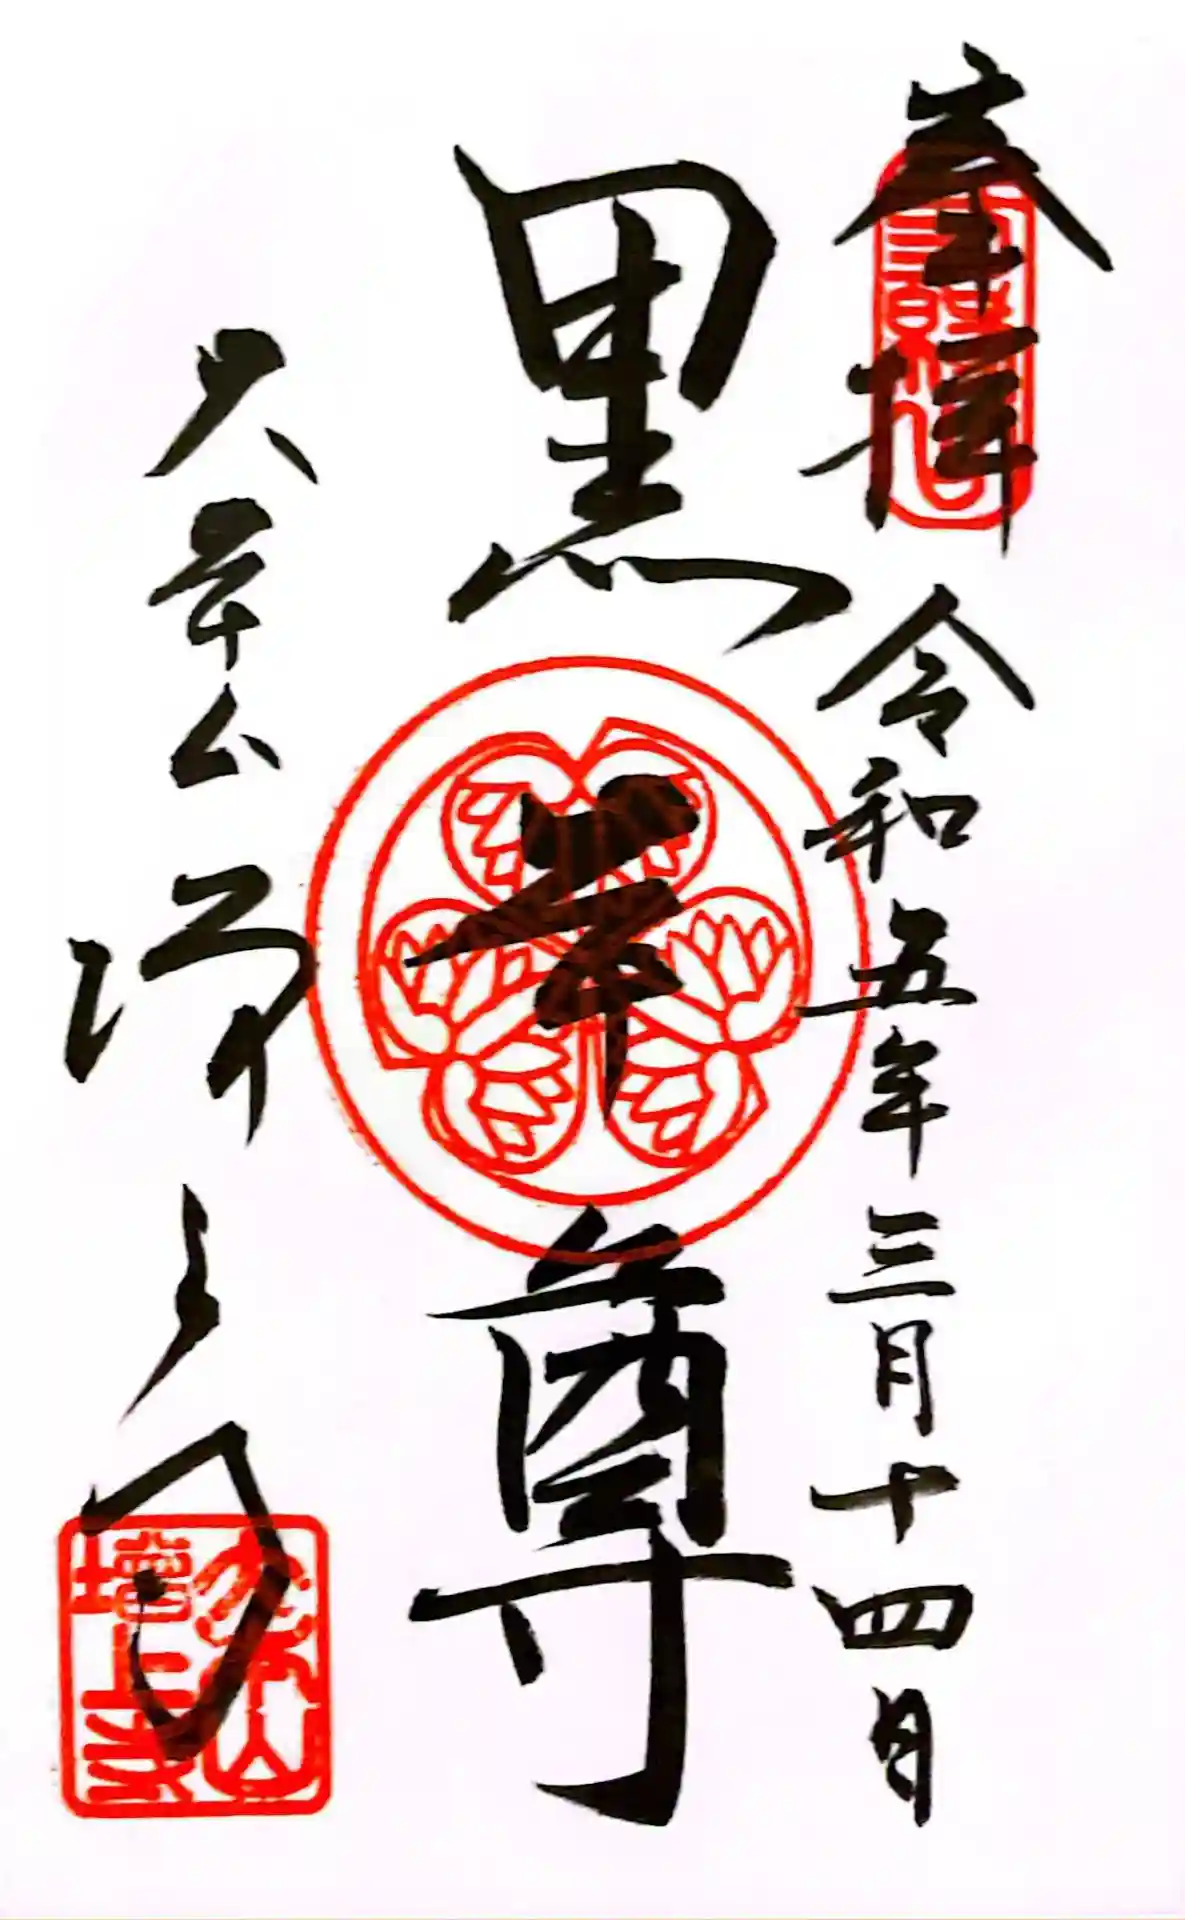 奉拝 令和五年三月十四日
黒本尊
大本山 増上寺
大本山
増上寺